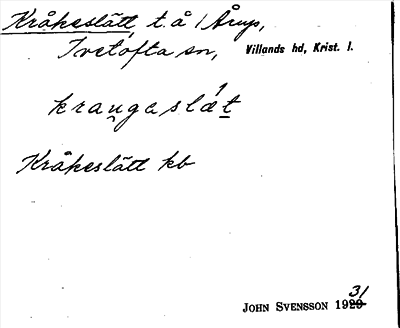 Kråkeslätt, t. å / Årup,
Ivetofta sn, Villands hd, Krist. l.
kraugaslæt
Kråkeslätt kb
JOHN SVENSSON 1931